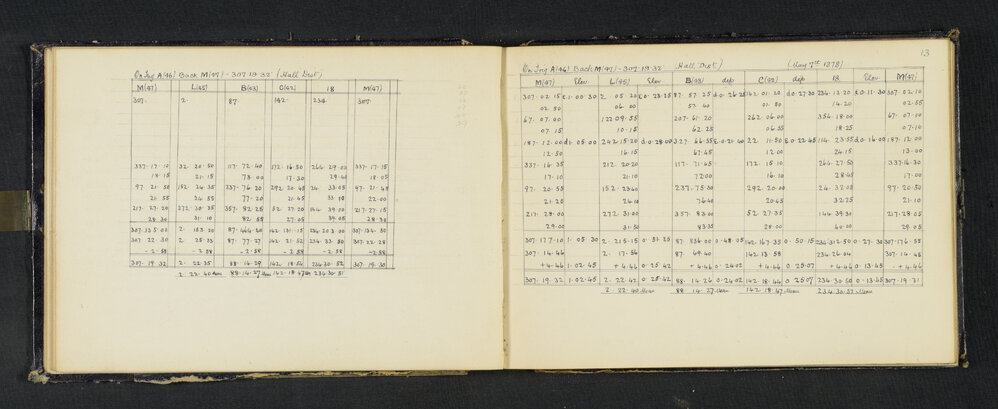 On Trig A(46) Back M(47) - 307.19.32 (Hall Dist)
M(47) L(45) B(43) C(42) 18 M(47)
307. 2. 87. 142. 234. 307
337.17.10 32.20.50 117.72.40 172.16.50 264.29.00 337.17.15
18.15 21.15 73.00 17.30 29.40 18.05
97.21.50 152.24.35 237.76.20 292.20.45 24.33.05 97.21.45
21.55 24.55 77.20 21.45 33.10 22.00
217.27.20 272.30.35 357.82.25 52.27.20 144.39.00 217.27.15
28.30 31.10 82.55 27.05 39.05 28.30
307.135.00 2.153.20 87.464.20 142.131.15 234.203.00 307.134.50
307.22.30 2.25.33 87.77.27 142.21.52 234.33.50 307.22.28
-2.58 -2.58 -2.58 -2.58 -2.58 -2.58
307.19.32 2.22.35 88.14.29 142.18.54 234.30.52 307.19.30
2.22.40 Mean 88.14.27 Mean 142.18.47 234.30.51
13
On Trig A(46) Back M(47) - 307.19.32 (Hall Dist) (Aug 7th 1878)
M(47) Elev L(45) Elev B(43) dep C(42) dep 18 Elev M(47)
307.02.15 E.1.00.30 2.05.20 E.0.23.25 87.57.25 d.0.26.25 142.01.20 d.0.27.30 234.13.20 E.0.11.30 307.02.10
02.50 06.00 57.40 01.50 14.20 02.55
67.07.00 122.09.55 207.61.20 262.06.00 354.18.00 67.07.00
07.15 10.15 62.25 06.35 18.25 07.10
187.12.00 d.1.05.00 242.15.20 d.0.28.00 327.66.55 E.0.21.40 22.11.50 E.0.22.45 114.23.55 d.0.16.00 187.12.00
12.50 16.15 67.45 12.00 24.15 13.00
337.16.35 212.20.20 117.71.45 172.15.10 264.27.50 337.16.30
17.10 21.10 72.00 16.10 28.45 17.00
97.20.55 152.23.40 237.75.30 292.20.00 24.32.05 97.20.50
21.20 24.10 76.40 20.45 32.75 21.10
217.28.00 272.31.00 357.83.00 52.27.35 144.39.30 217.28.05
29.00 31.50 83.35 28.00 40.00 29.05
307.177.10 1.05.30 2.215.15 0.51.25 87.836.00 0.48.05 142.167.35 0.50.15 234.312.50 0.27.30 307.176.55
307.14.46 2.17.56 87.69.40 142.13.58 234.26.04 307.14.45
+4.46 1.02.45 +4.46 0.25.42 +4.46 0.24.02 +4.46 0.25.07 +4.46 0.13.45 +4.46
307.19.32 1.02.45 2.22.42 0.25.42 88.14.26 0.24.02 142.18.44 0.25.07 234.30.50 0.13.45 307.19.31
2.22.40 Mean 88.14.27 Mean 142.18.47 Mean 234.30.51 Mean